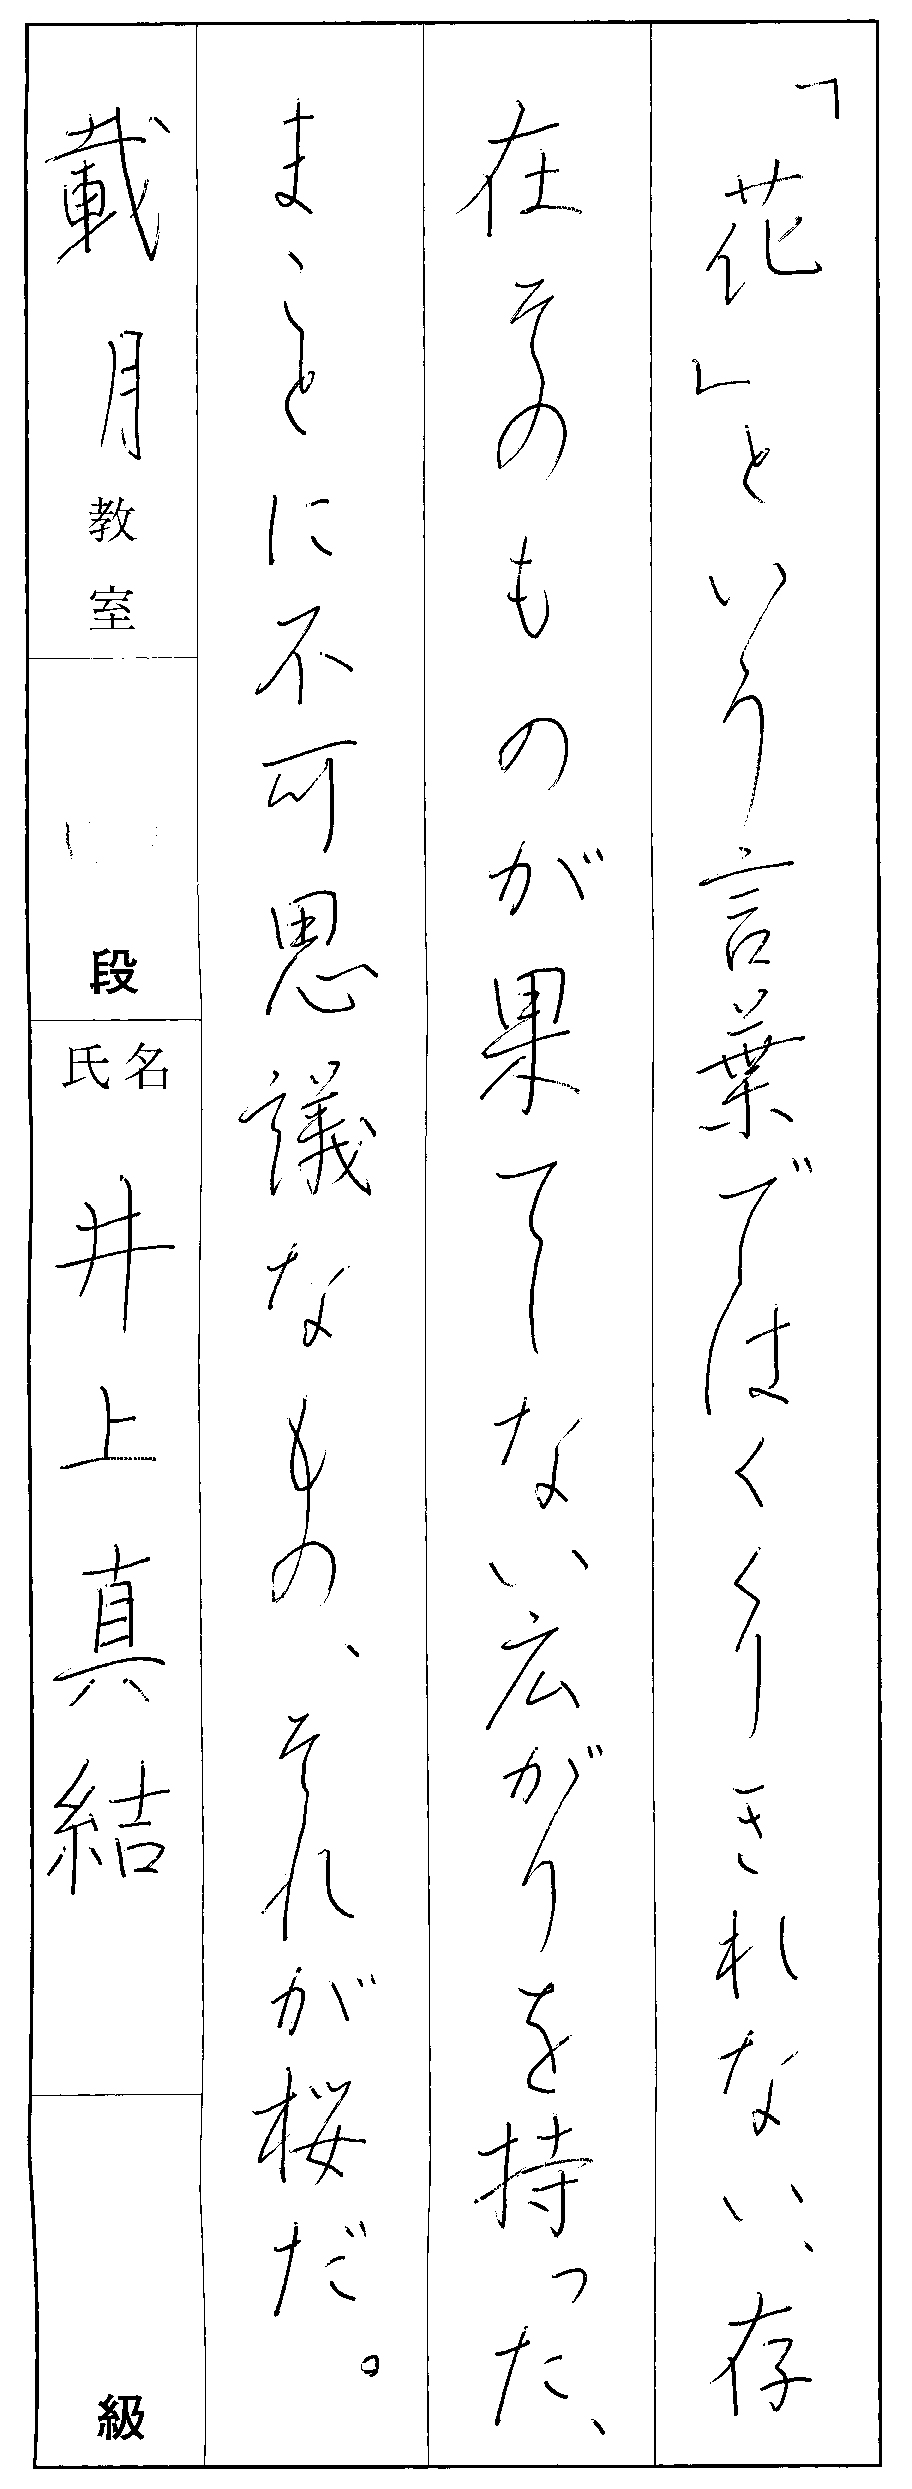 「花」という言葉ではくくりきれない、存
在そのものが果てしない広がりを持った、
まことに不可思議なもの、それが桜だ。
載月教室
段
氏名 井上真結
級